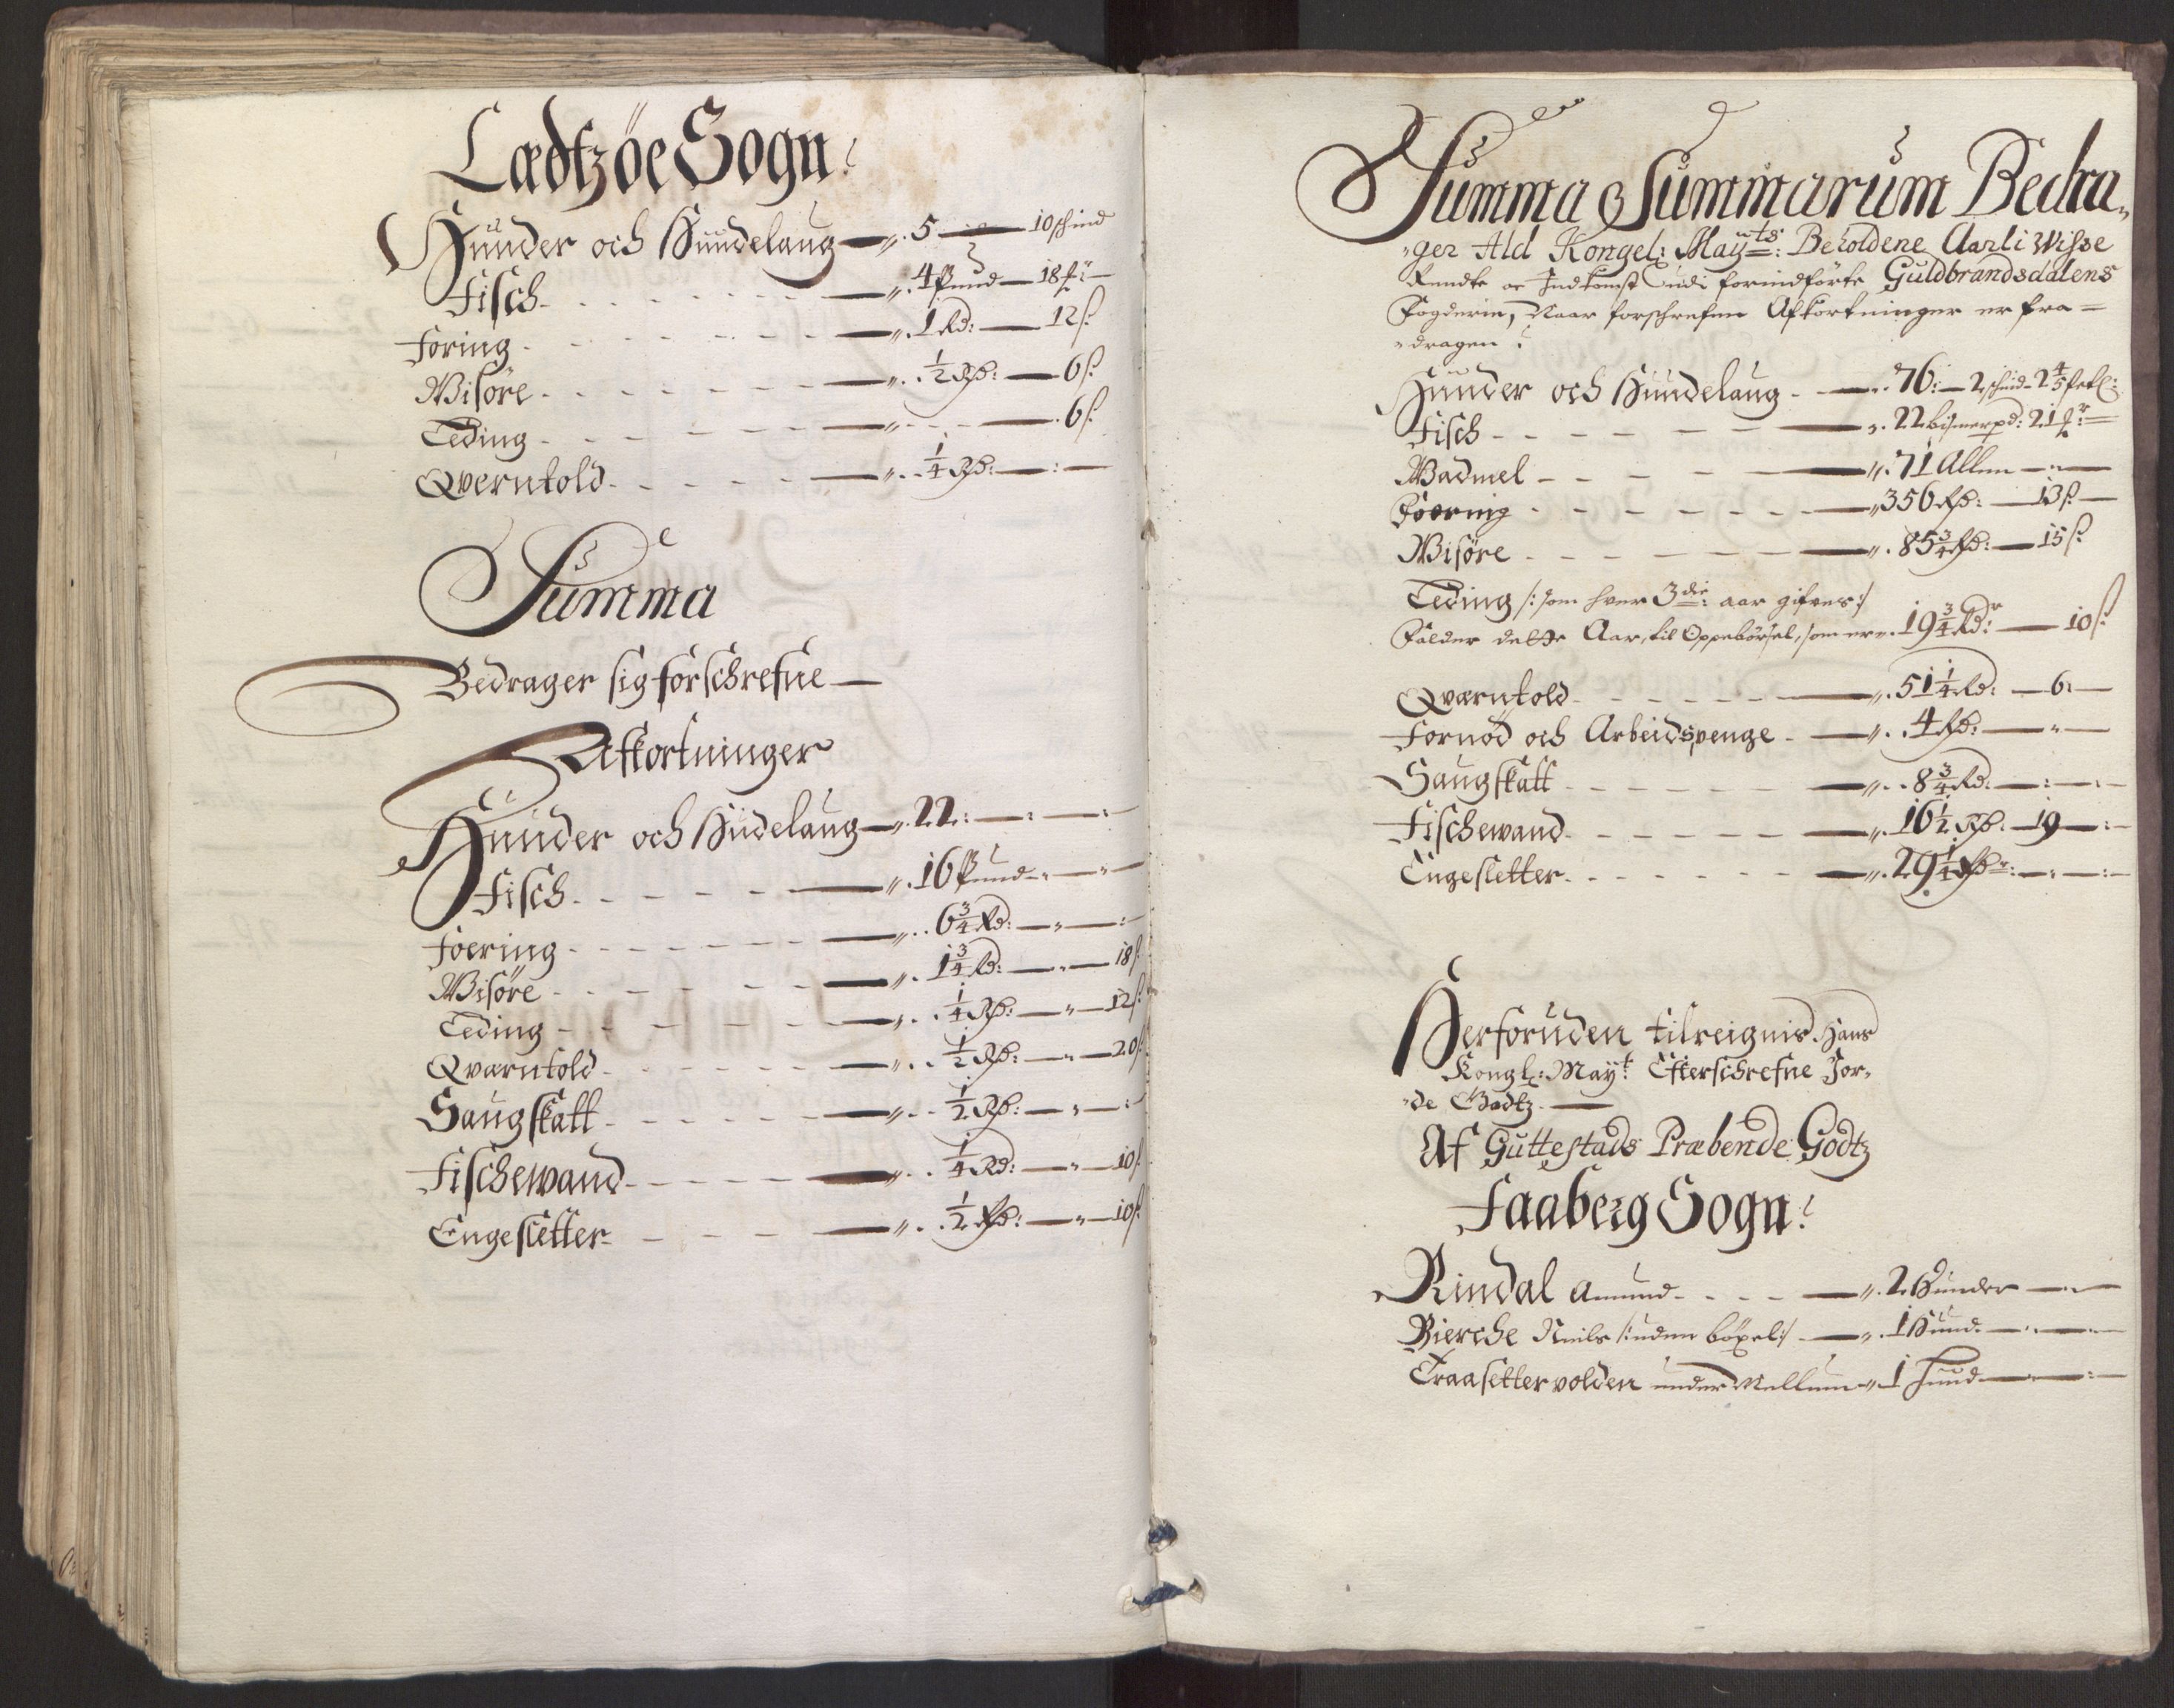 Lædtzöe Sogn:
Hunder och Hundelaug — „. 5 — 10 schind
Fisch - - - — „. 4 Pund — 18 ℔: —
Foring - - - — „. 1 Rd: — 12 ß:
Wisöre - - - — „. ½ Rd: — 6 ß:
Teding - - - — „ - - — 6 ß:
Qverntold - - - — „. ¼ Rd: — : —
Summa
Bedrager sig forschrefne —
Afkortninger
Hunder och Hudelaug — „. 22: — : — :
Fisch - - - — „. 16 Pund — „ —
Foering - - - — „. 6¾ Rd: — „ — :
Wisöre - - - — „. 1¾ Rd: — „ — 18 ß
Teding - - - — „. ¼ Rd: — „ — 12 ß:
Qværntold - - - — „. ½ Rd: — „ — 20 ß
Saugskatt - - - — „. ½ Rd: — „ — :
Fischewand - - - — „. ¼ Rd: — „ — 10 ß.
Engesletter - - - — „. ½ Rd: — „ — 10 ß.
Summa Summarum Bedra„
„ger Ald Kongel: Mayts: Beholdene Aarli Wisse
Rendte oc Indkomst udi forindförte Guldbrandsdalens
Fogderie, Naar forschrefne Afkortninger er fra =
„dragen :
Hunder och Hundelaug - — „. 76: — 2 schind - 2⅘
Fisch - - - — „. 22 bismerpd: 21 ℔: —
Wadmel - - - — „. 71 Allen — „ —
Foering - - - — „ 356 Rd: — 13 ß: —
Wisöre - - - — „. 85¾ Rd: — 15 ß:
Teding /: som hver 3die: aar gifves :/
Falder dette Aar, til Oppebörsel, som er „. 19¾ Rdr: — 10 ß
Qværntold - - - — „. 51¼ Rd: — 6: —
Fornöd och Arbeidspenge - — „. 4 Rd: — „ —
Saugskatt - - - — „. 8¾ Rd: — : — : —
Fischewand - - - — „. 16½ Rd: — 19 — : —
Engesletter - - - — „. 29¼ Rdr: — „ — : —
Herforuden tilreignis Hans
Kongl: Mayt: Efterschrefne Jor„
„de Godtz —
Af Guttestads Præbende Godtz
Faaberg Sogn:
Rindal Amund - - - — „. 2 Hunder — „ —
Bierche Niils /: uden böxel :/ — „. 1 Hund — „ —
Traasetter volden under Mellum „ 1 hund — „ — : —